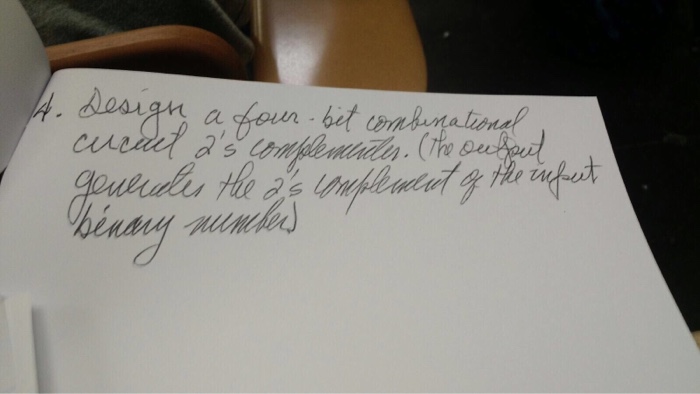 4. Design a four-bit combinational
circuit 2's complementer. (The output
generates the 2's complement of the input
binary number)